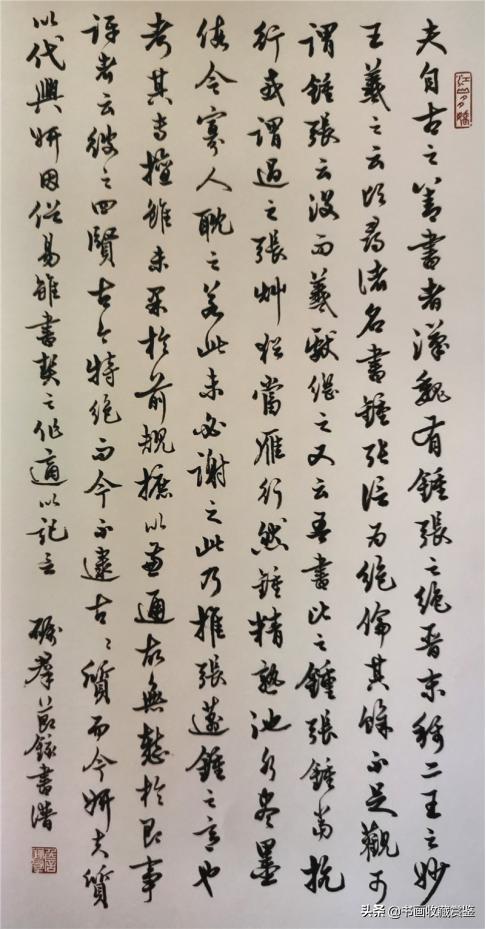 江山多嬌
夫自古之善書者漢魏有鍾張之絕晉末稱二王之妙
王羲之云頃尋諸名書鍾張信為絕倫其餘不足觀可
謂鍾張云沒而羲獻繼之又云吾書比之鍾張鍾當抗
行或謂過之張艸猶當雁行然鍾精熟池水盡墨
假令寡人耽之若此未必謝之此乃推張邁鍾之意也
考其專擅雖未果於前規摭以兼通故無慙於即事
評者云彼之四賢古今特絕而今不逮古〻質而今妍夫質
以代興妍因俗易雖書契之作適以記言
群節錄書譜
头条 @书画收藏赏鉴